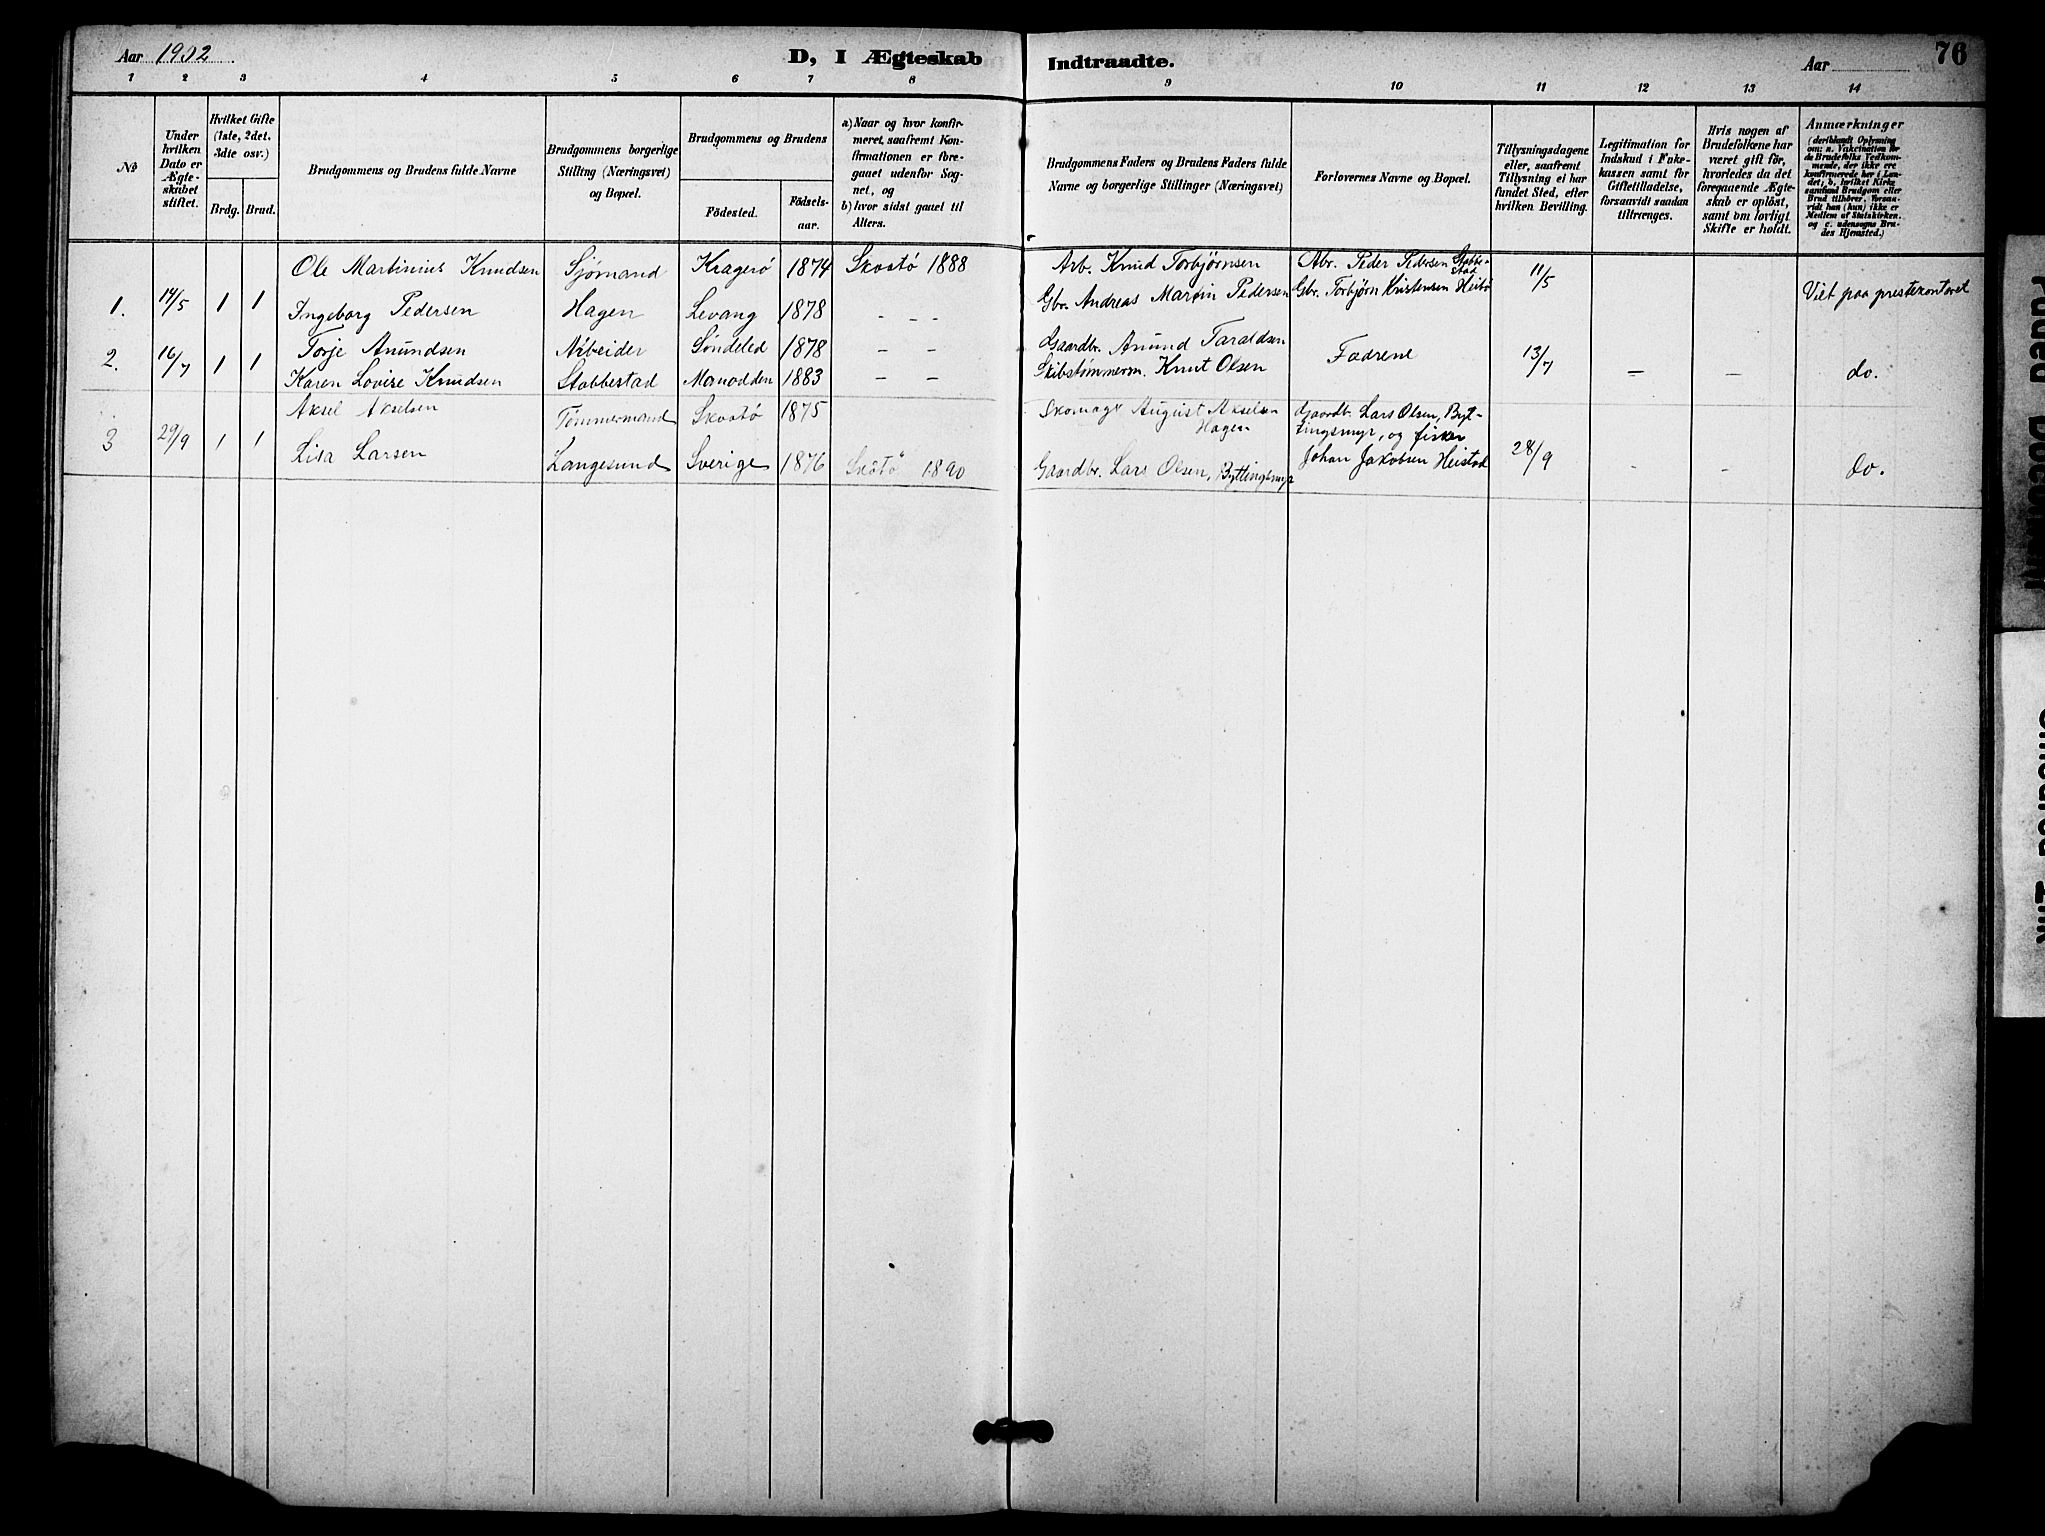 Aar 1902
D, I Ægteskab Indtraadte.
Aar
76
1 2 3 4 5 6 7 8 9 10 11 12 13 14
No
Under hvilken Dato er Ægteskabet stiftet.
Hvilket Gifte (1ste, 2det, 3die osv.)
Brdg. Brud.
Brudgommens og Brudens fulde Navne
Brudgommens borgerlige Stilling (Næringsvei) og Bopæl.
Brudgommens og Brudens
Födested.
Födselsaar.
a) Naar og hvor konfirmeret, saafremt Konfirmationen er foregaaet udenfor Sognet, og
b) hvor sidst gaaet til Alters.
Brudgommens Faders og Brudens Faders fulde Navne og borgerlige Stillinger (Næringsvei)
Forlovernes Navne og Bopæl.
Tillysningsdagene eller, saafremt Tillysning ei har fundet Sted, efter hvilken Bevilling.
Legitimation for Indskud i Enkekassen samt for Giftetilladelse, forsaavidt saadan tiltrænges.
Hvis nogen af Brudefolkene har været gift før, hvorledes da det foregaaende Ægteskab er oplöst, samt om lovligt Skifte er holdt.
Anmærkninger
(deriblandt Oplysning om: a. Vakcination for de Brudefolks Vedkommende, der ikke ere konfirmerede her i Landet; b. hvilket Kirkesamfund Brudgom eller Brud tilhörer, forsaavidt han (hun) ikke er Medlem af Statskirken, og c. udensogns Brudes Hjemsted.)
1. 14/5 1 1
Ole Martinius Knudsen Sjømand Kragerö 1874 Skaatö 1888 Arb. Knud Torbjørnsen Abr. Peder Pedersen Stabbestad 11/5
Ingeborg Pedersen Hagen Levang 1878 - - - Gbr. Andreas Martin Pedersen Gbr. Torbjørn Kristensen Viet paa prestekontoret
2. 16/7 1 1
Torje Anundsen Arbeider Söndeled 1878 - - Gaardbr. Anund Taraldsen Fædrene 13/7
Karen Lovise Knudsen Stabbestad 1883 - - Skibstømmerm. Knut Olsen - - do.
3 29/9 1 1
Aksel Akselsen Tømmermand Skaatö 1875 Skomager August Akselsen Hagen Gaardb. Lars Olsen, Bytingsmyr, og
Lisa Larsen Langesund Sverige 1876 Skåtö 1890 Gaardbr. Lars Olsen, Byttingsmyr Johan Jakobsen Heistad 28/9 - - do.